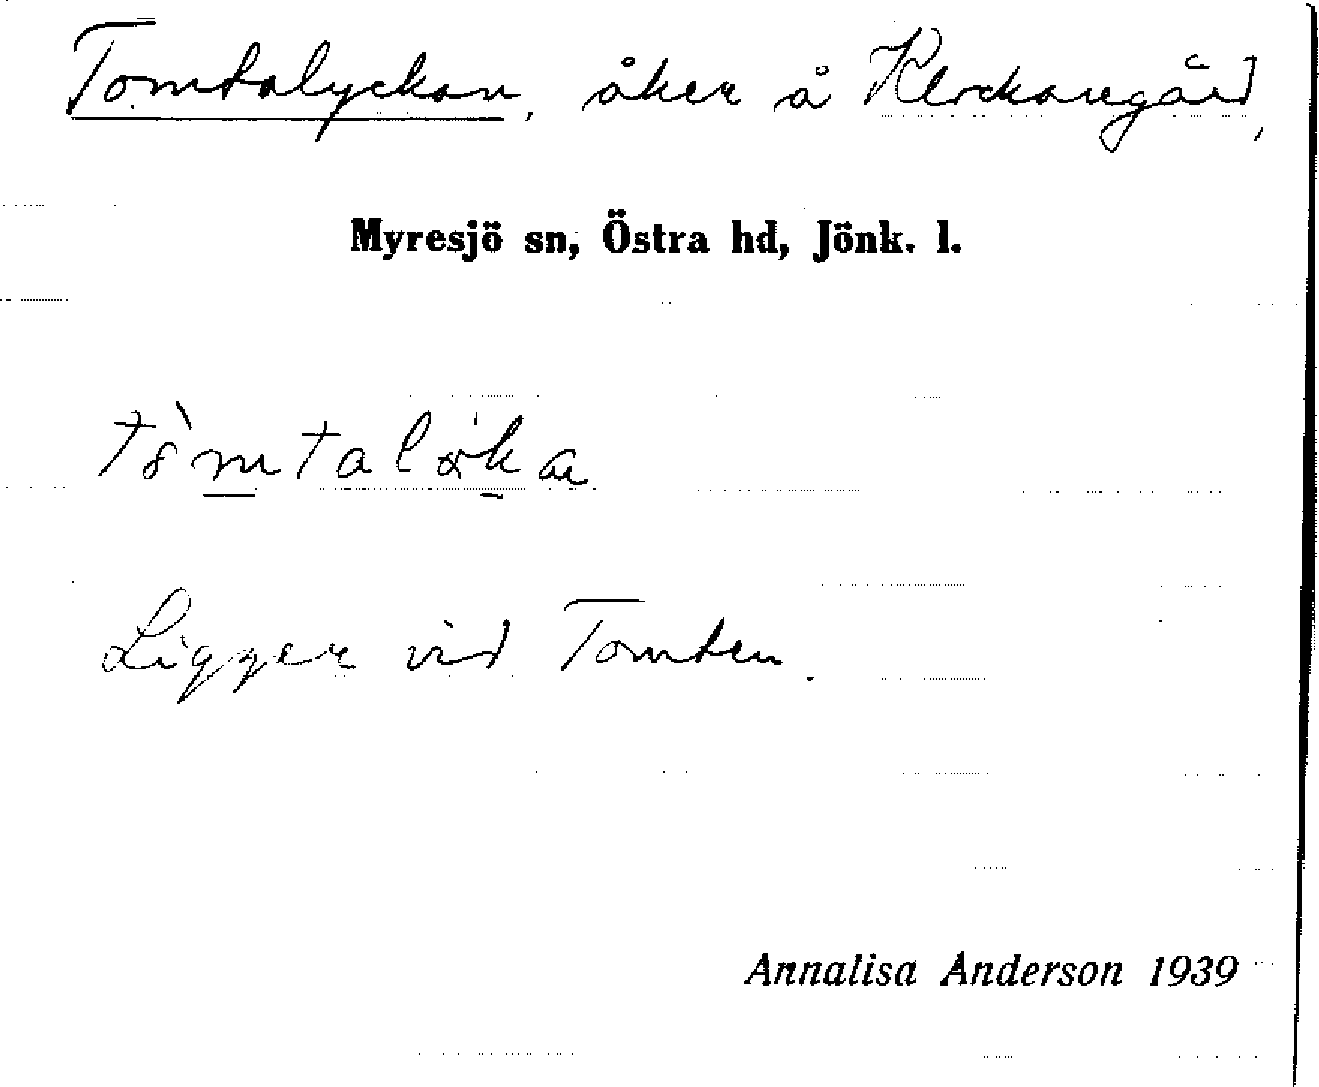 Tomtalyckan, åker å Klockaregård,
Myresjö sn, Östra hd, Jönk. l.
Ligger vid Tomten.
Annalisa Anderson 1939